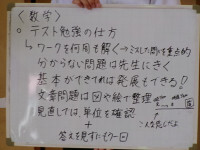 〈数学〉
○テスト勉強の仕方
↳ワークを何周も解く→ミスした問を重点的
分からない問題は先生にきく
基本ができてれば発展もできる!
文章問題は図や絵で整理
見直しでは、単位を確認
+
答えを見ずにもう一回
こんな感じでよ